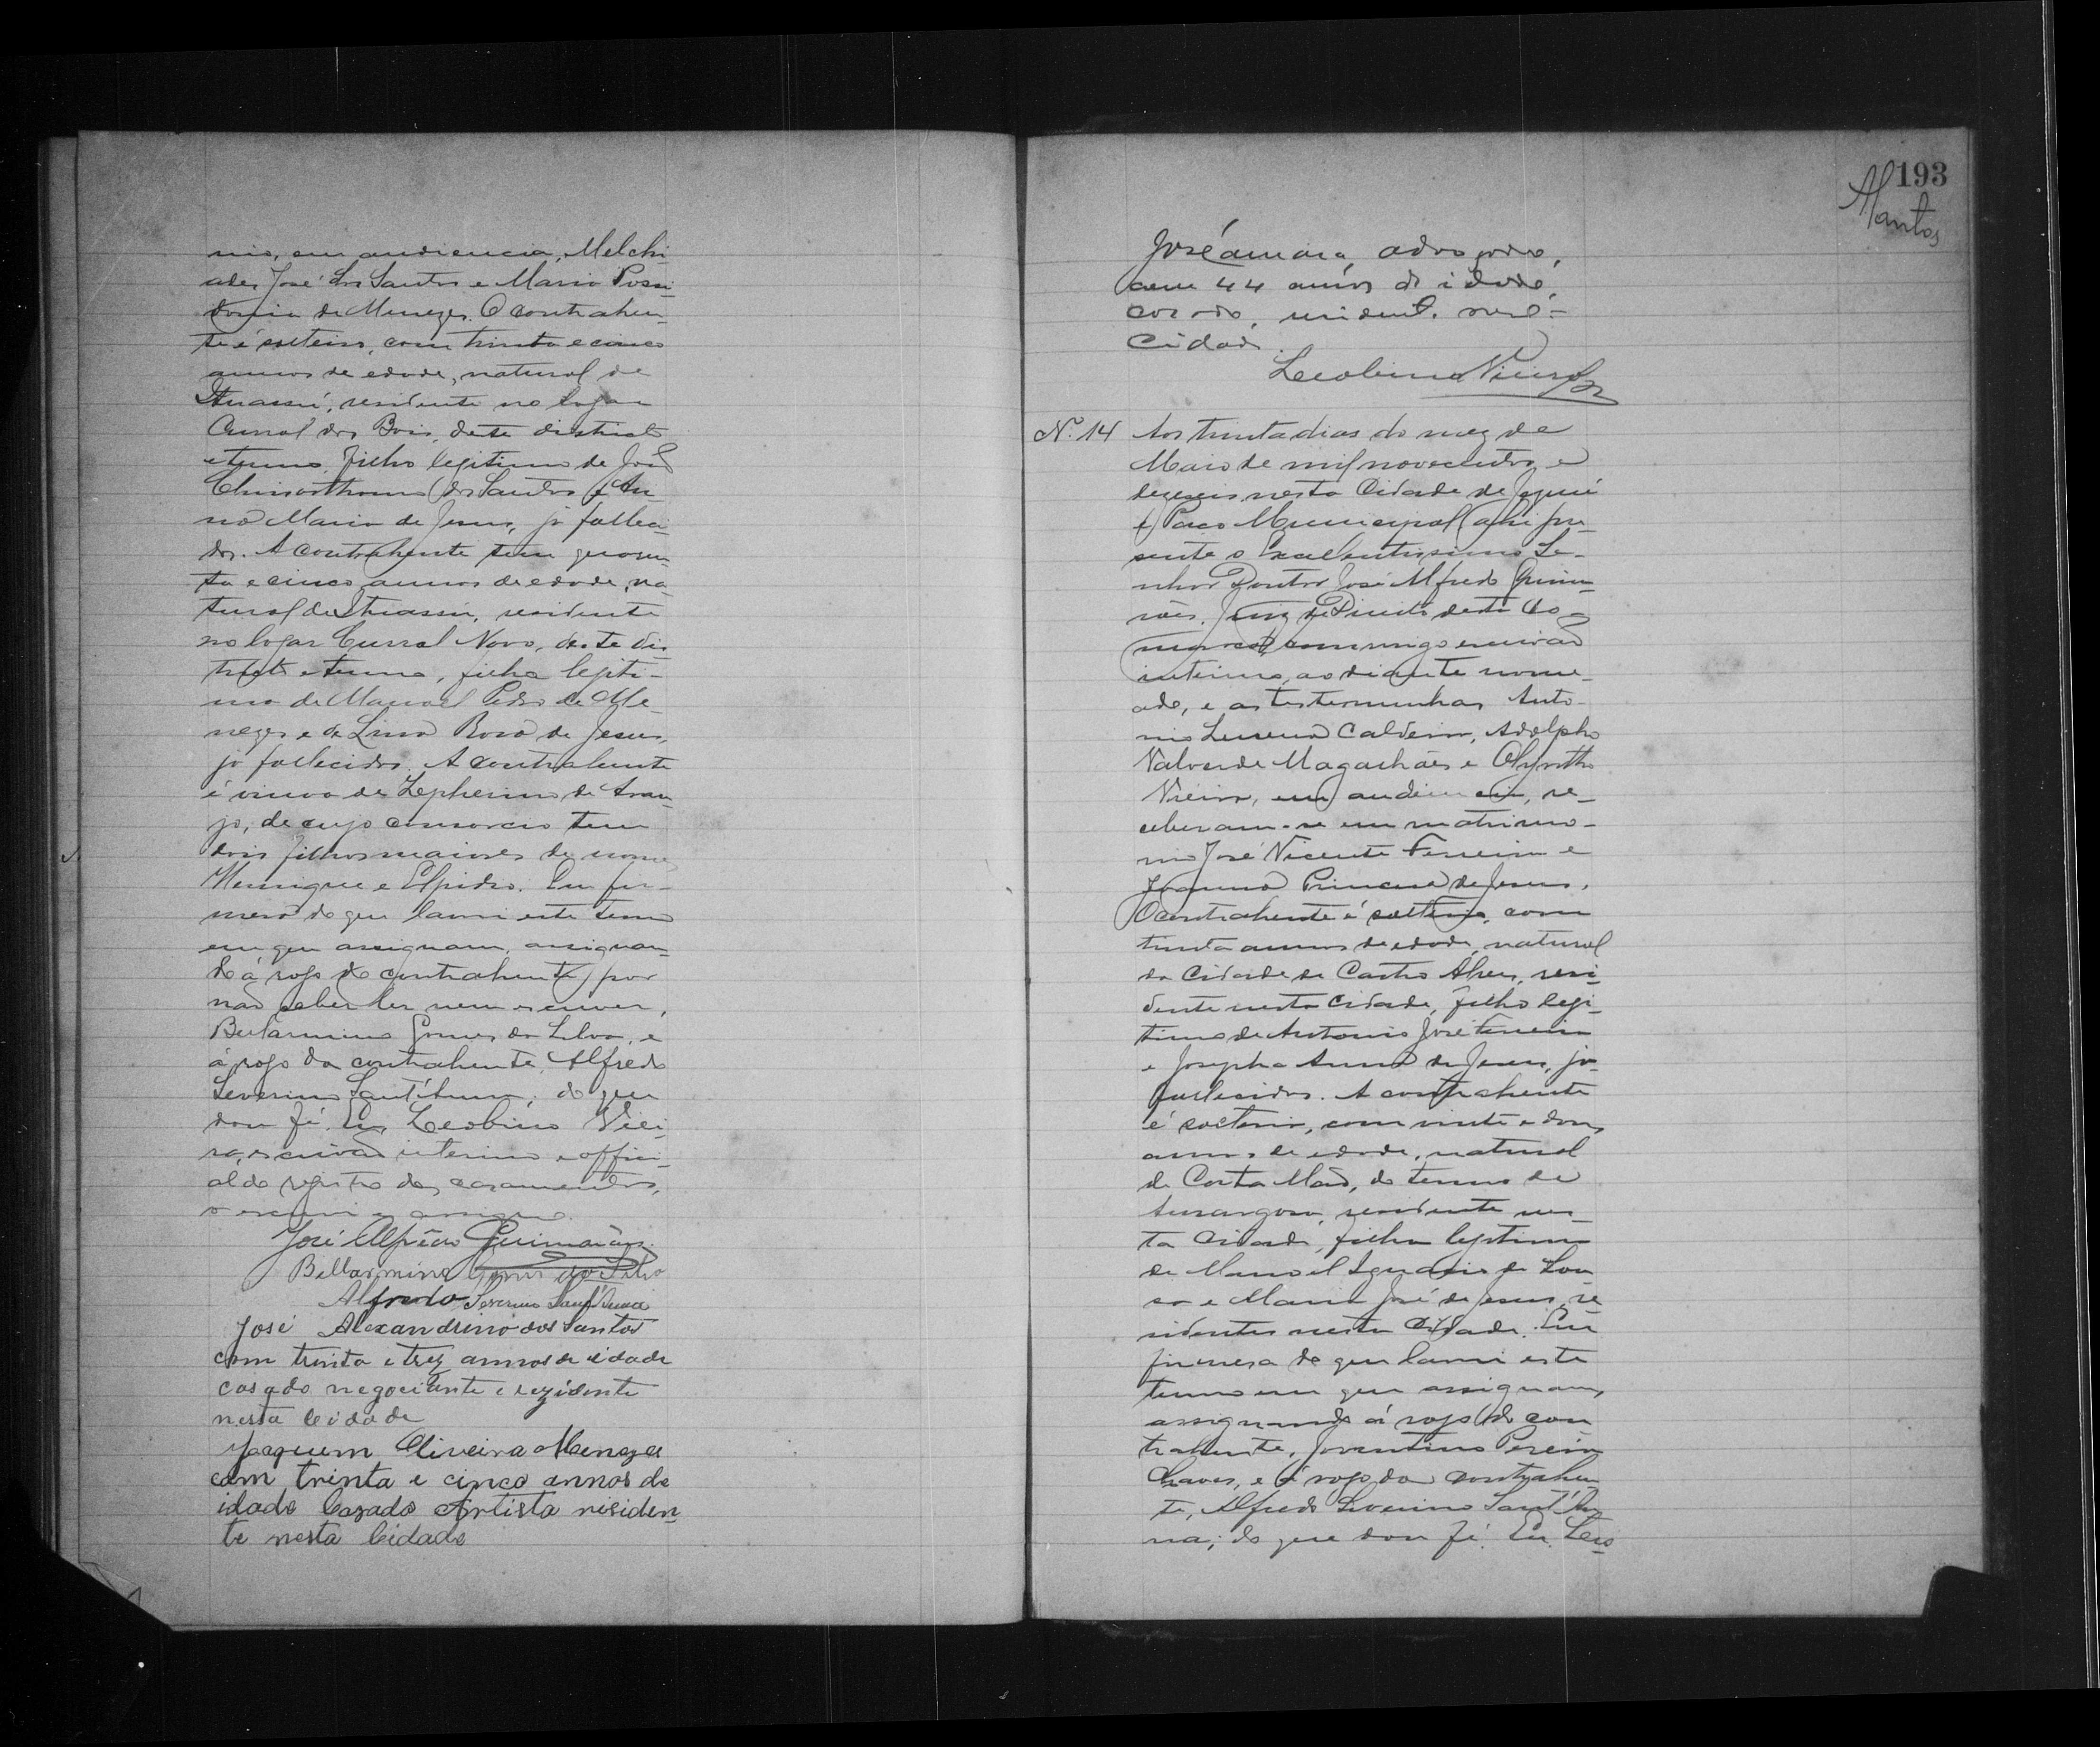 nio, em audiencia, Melchi-
ades José dos Santos e Maria Possi-
donia de Menezes. O contrahen-
te é solteiro, com trinta e cinco
annos de edade, natural de
Ituassú, residente no logar
Curral dos Bois, deste districto
e termo, filho legitimo de José
Chrisosthomo dos Santos e An-
na Maria de Jesus, já falleci-
dos. A contrahente tem quaren-
ta e cinco annos de edade, na-
tural de Ituassú, residente
no logar Curral Novo, deste dis-
tricto e termo, filha legiti-
ma de Manoel Pedro de Me-
nezes e de Lina Rosa de Jesus,
já fallecidos. A contrahente
é viuva de Zepherino de Arau-
jo, de cujo consorcio tem
dois filhos maiores de nomes
Henrique e Elpidio. Em fir-
meza do que lavrei este termo
em que assignam, assignan-
do á rogo do contrahente, por
não saber ler nem escrever,
Bellarmino Gomes da Silva, e
á rogo da contrahente, Alfredo
Severino Sant'Anna, do que
dou fé. Eu, Leobino Viei-
ra, escrivão interino e offici-
al do registro dos casamentos,
o escrevi e assigno.
José Alfredo Guimarães.
Bellarmino Gomes da Silva
Alfredo Severino Sant'Anna
José Alexandrino dos Santos
com trinta e trez annos de idade
casado negociante e rezidente
nesta cidade
Joaquim Oliveira Menezes
com trinta e cinco annos de
idade Cazado Artista residen-
te nesta Cidade
193
Santos
José amara, advogado,
com 44 annos de idade,
casado, resident. nesta
Cidade.
Leobino Vieira
N. 14 Aos trinta dias do mez de
Maio de mil novecentos e
dezeseis nesta Cidade de Jequié
e Paço Municipal ahi pre-
sente o Excellentissimo Se-
nhor Doutor José Alfredo Guima-
rães, Juiz de Direito desta Co-
marca, commigo escrivão
interino, ao diante nome-
ado, e as testemunhas Anto-
nio Lucena Caldeira, Adolpho
Valverde Magalhães e Olyntho
Vieira, em audiencia, re-
ceberam-se em matrimo-
nio José Vicente Ferreira e
Joanna Princesa de Jesus.
O contrahente é solteiro, com
trinta annos de edade, natural
da Cidade de Castro Alves, resi-
dente nesta Cidade, filho legi-
timo de Antonio José Ferreira
e Josepha Anna de Jesus, já
fallecidos. A contrahente
é solteira, com vinte e dous
annos de edade, natural
de Corta Mão, do termo de
Amargosa, residente nes-
ta Cidade, filha legitima
de Manoel Ignacio de Sou-
sa e Maria José de Jesus, re-
sidentes nesta Cidade. Em
firmesa do que lavrei este
termo em que assignam,
assignando á rogo do con-
trahente, Juventino Pereira
Chaves, e á rogo da contrahen-
te, Alfredo Severino Sant'An-
na; do que dou fé. Eu, Leo-